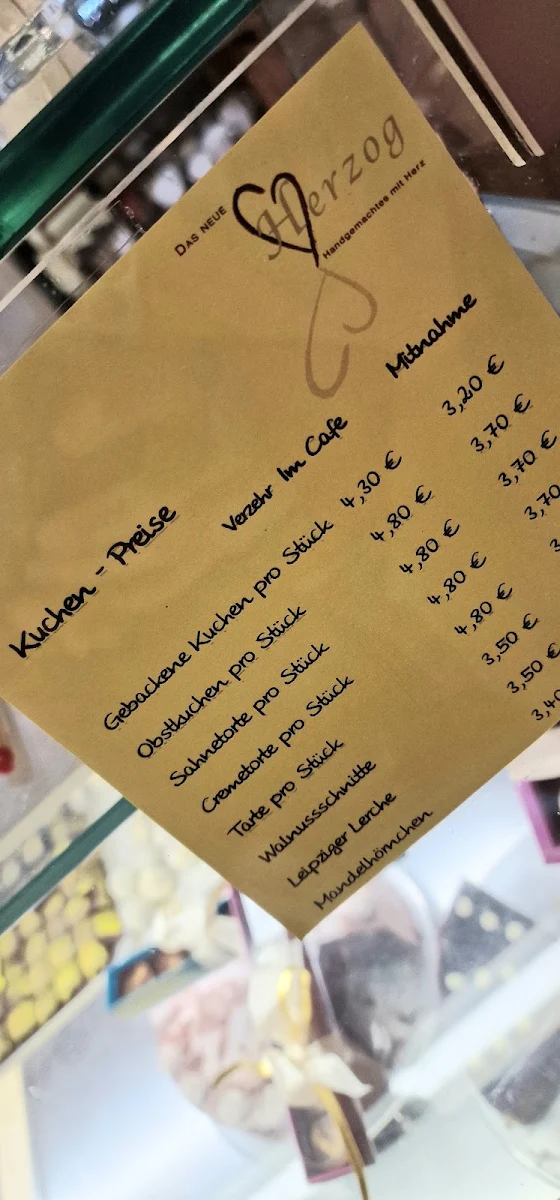 DAS NEUE Herzog
Handgemachtes mit Herz
Kuchen - Preise Verzehr Im Cafe Mitnahme
Gebackene Kuchen pro Stück 4,30 € 3,20 €
Obstkuchen pro Stück 4,80 € 3,70 €
Sahnetorte pro Stück 4,80 € 3,70 €
Cremetorte pro Stück 4,80 € 3,70
Tarte pro Stück 4,80 €
Walnussschnitte 3,50 €
Leipziger Lerche 3,50 €
Mandelhörnchen 3,40